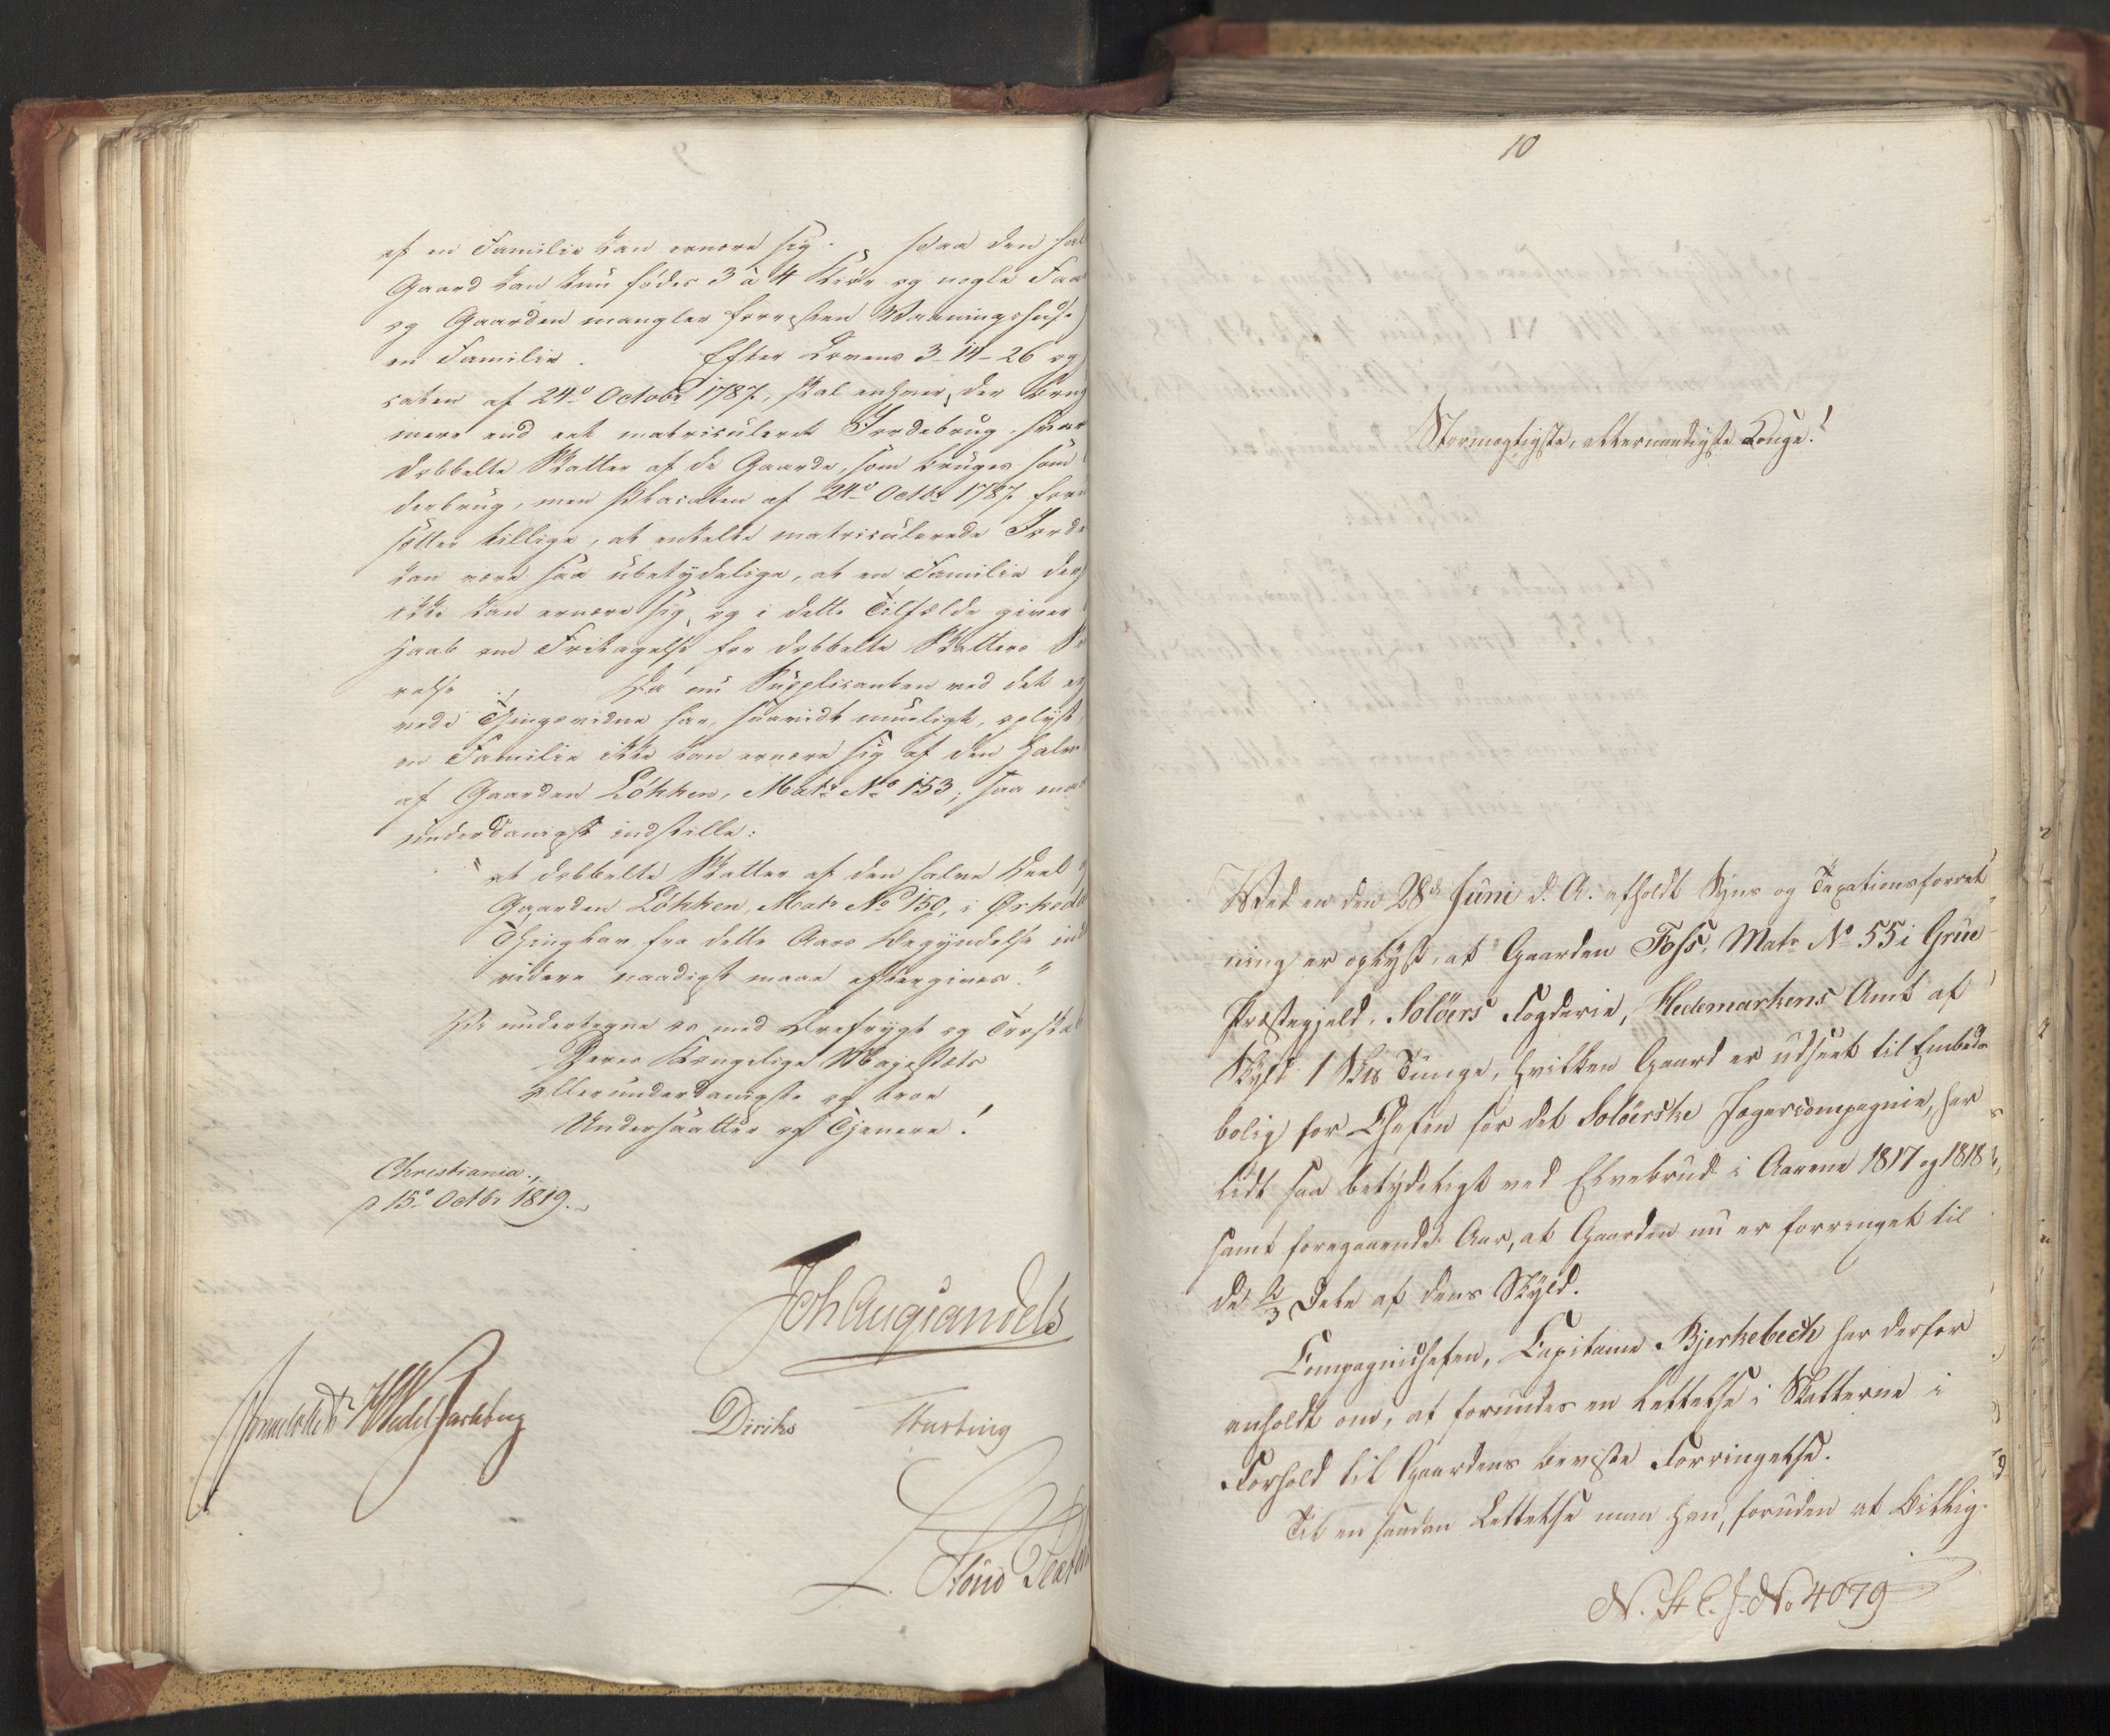 af en Familie kan ernære sig. Paa den hal
Gaard kan kun födes 3 à 4 Kiör og nogle Faar
og Gaarden mangler forresten Vaaningshuse
en Familie. Efter Lovens 3-14-26 og
caten af 24de Octobr 1787, skal enhver, der brug
mere end eet matriculeret Jordebrug, svar
dobbelte Skatter af de Gaarde, som bruges som
derbrug, men Placaten af 24de Octbr 1787 foru
sætter tillige, at enkelte matriculerede Jorde
kan være saa ubetydelige, at en Familie der
ikke kan ernære sig, og i dette Tilfælde giver
Haab om Fritagelse for dobbelte Skatters
relse. Da nu Supplicanten ved det er
vede Thingsvidne har, saavidt mueligt, oplyst,
en Familie ikke kan ernære sig af den halve
af Gaarden Lökken, Matr No 153; saa maa
underdanigst indstille:
"at dobbelte Skatter af den halve Deel
Gaarden Lökken, Matr No 150, i Örkedal
Thinglav fra dette Aars Begyndelse ind
videre naadigst maae eftergives."
Vi undertegne os med Ærefrygt og Troskab
Deres Kongelige Majestæts
allerunderdanigste og troe
Undersaatter og Tjenere!
Christiania,
d 15de Octbr 1819.
Joh Aug Sandels
Sommerhielm HWedel Jarlsberg Diriks Hasting
L. Stoud Platou
10
Stormægtigste, allernaadigste Konge!
Ved en den 28de Juni d. A. afholdt Syns og Taxationsforret
ning er oplyst, at Gaarden Foss, Matr No 55 i Grue
Præstegjeld, Solöers Fogderie, Hedemarkens Amt af
Skyld 1 Skp Tunge, hvilken Gaard er udseet til Embeds
bolig for Chefen for det Solöerske Jægercompagnie, har
lidt saa betydeligt ved Elvebrud i Aarene 1817 og 1818,
samt foregaaende Aar, at Gaarden nu er forringet til
de 2/3 Dele af dens Skyld.
Compagniechefen, Capitaine Bjerkebech har derfor
anholdt om, at forundes en Lettelse i Skatterne i
Forhold til Gaardens beviste Forringelse.
Til en saadan Lettelse maa han, foruden at Billig-
N. St C. J. No 4079